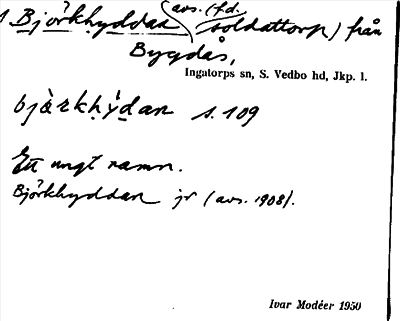 1 Björkhyddan avs. (f.d.
soldattorp) från
Bygdås,
Ingatorps sn, S. Vedbo hd, Jkp. l.
bjàrkḥýdan s. 109
Ett ungt namn.
Björkhyddan jr (avs. 1908).
Ivar Modéer 1950